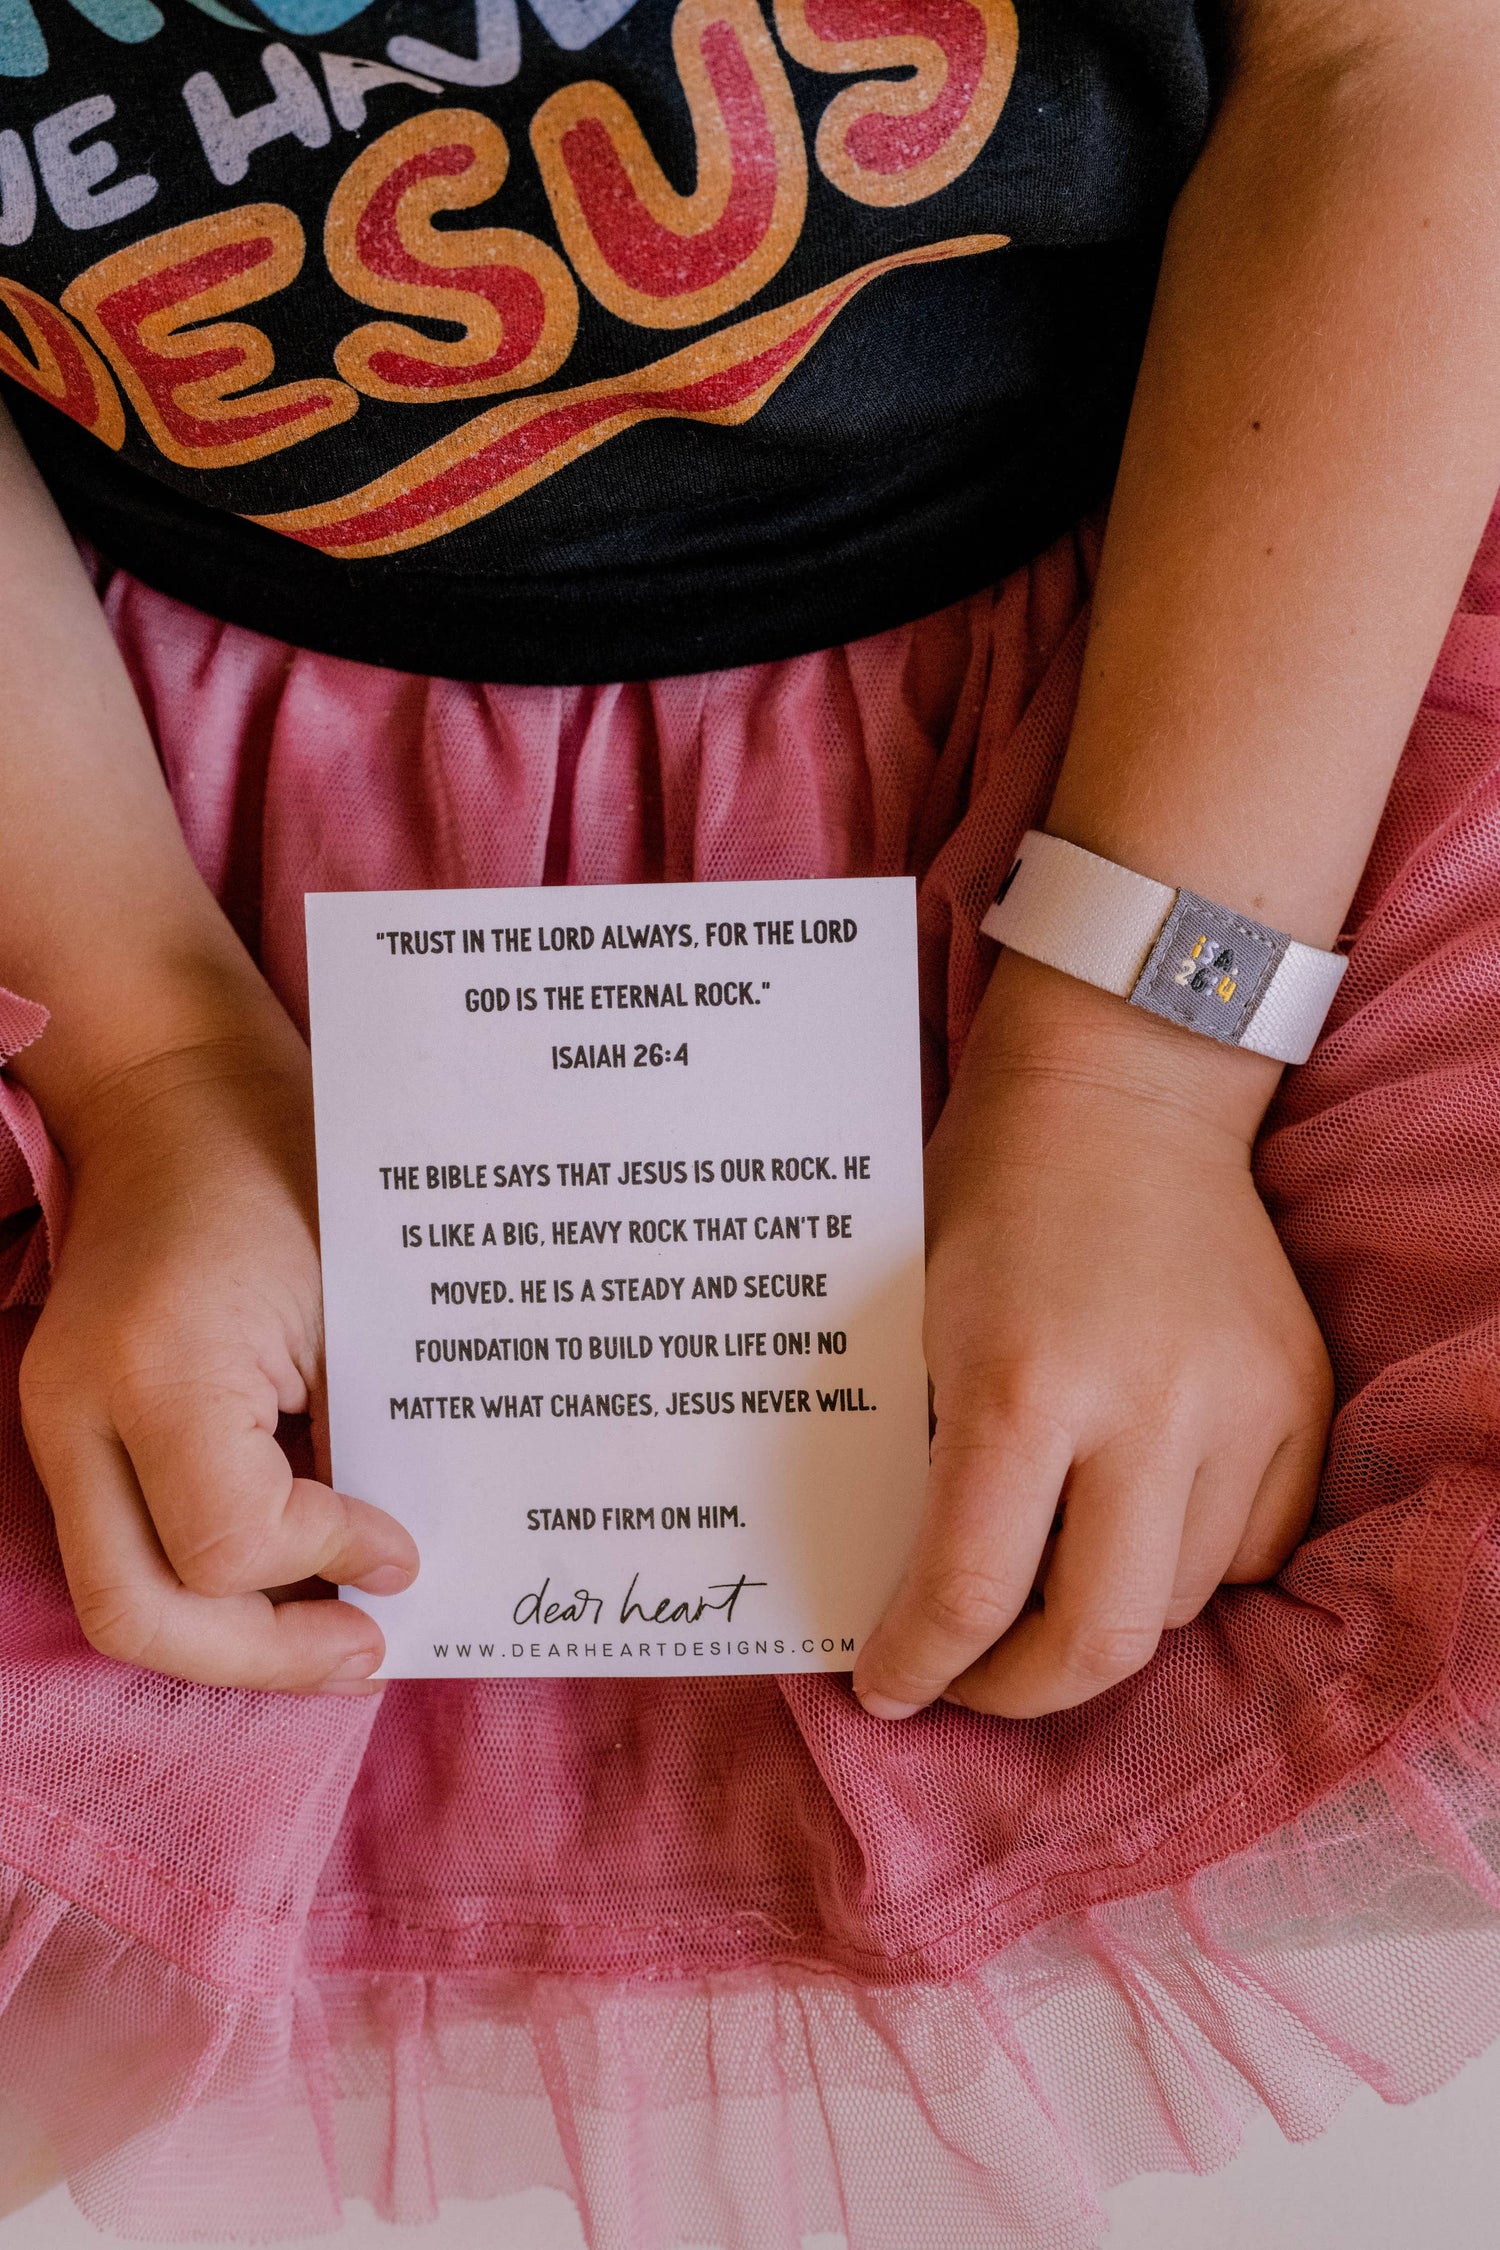 WE HAVE
JESUS
"TRUST IN THE LORD ALWAYS, FOR THE LORD
GOD IS THE ETERNAL ROCK."
ISAIAH 26:4
THE BIBLE SAYS THAT JESUS IS OUR ROCK. HE
IS LIKE A BIG, HEAVY ROCK THAT CAN'T BE
MOVED. HE IS A STEADY AND SECURE
FOUNDATION TO BUILD YOUR LIFE ON! NO
MATTER WHAT CHANGES, JESUS NEVER WILL.
STAND FIRM ON HIM.
dear heart
WWW.DEARHEARTDESIGNS.COM
iSA.
26:4